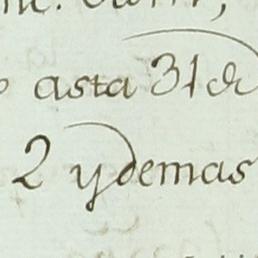 asta 31 de
2 y demas